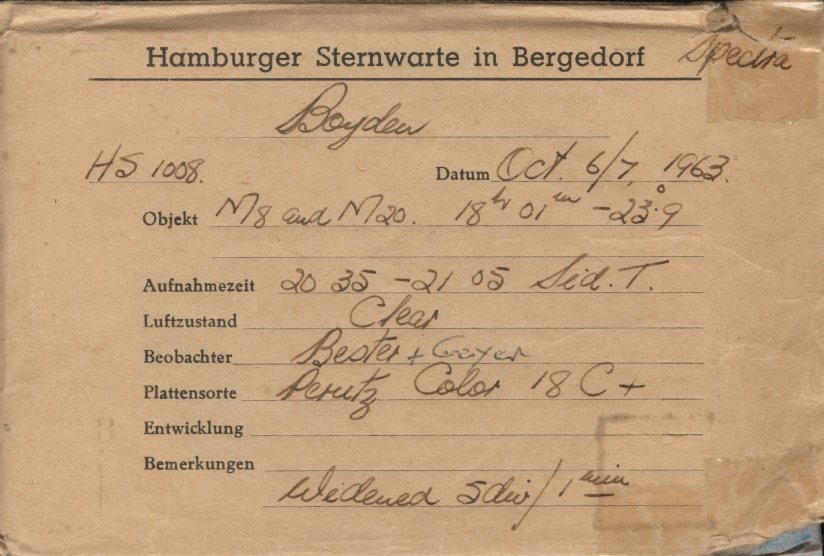 Hamburger Sternwarte in Bergedorf Spectra
Boyden
HS 1008. Datum Oct. 6/7, 1963.
Objekt M8 and M20. 18hr 01m -23°.9
Aufnahmezeit 20 35 - 21 05 Sid. T.
Luftzustand Clear
Beobachter Bester + Geyer
Plattensorte Perutz Color 18 C+
Entwicklung
Bemerkungen
Widened 5div/1min